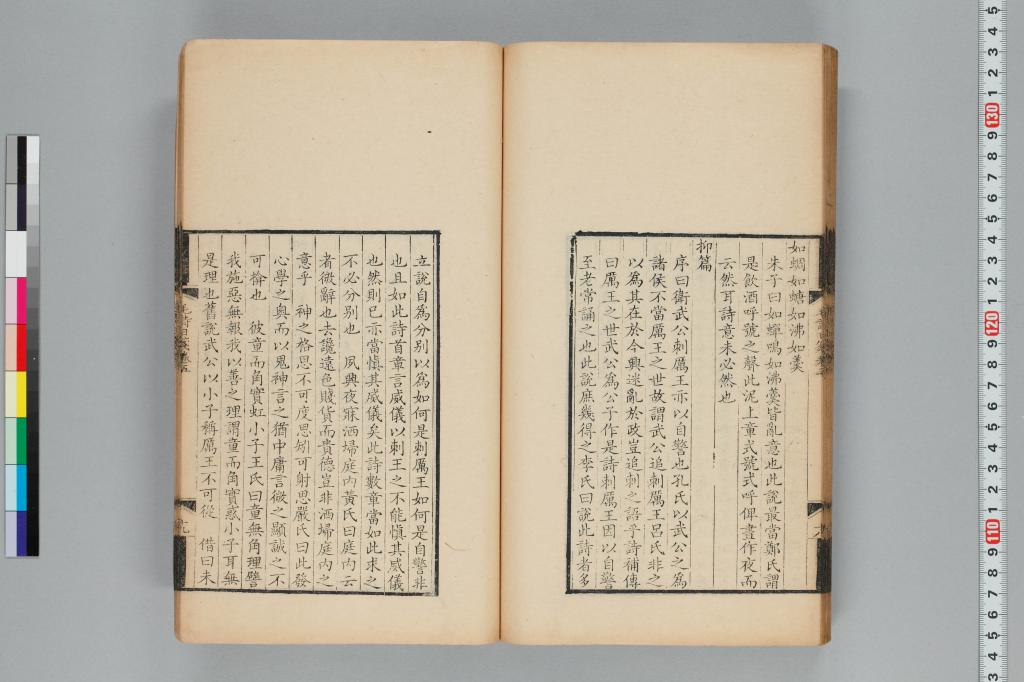 如蜩如螗如沸如羹
朱子曰如蟬鳴如沸羹皆亂意也此說最當鄭氏謂
是飲酒呼號之聲此泥上章式號式呼俾晝作夜而
云然耳詩意未必然也
抑篇
序曰衛武公刺厲王亦以自警也孔氏以武公之為
諸侯不當厲王之世故謂武公追刺厲王呂氏非之
以為其在於今興迷亂於政豈追刺之語乎詩補傳
曰厲王之世武公為公子作是詩刺厲王因以自警
至老常誦之也此說庶幾得之李氏曰說此詩者多
立說自為分別以為如何是刺厲王如何是自警非
也且如此詩首章言威儀以刺王之不能慎其威儀
也然則已亦當慎其威儀矣此詩數章當如此求之
不必分別也 夙興夜寐洒埽庭內黃氏曰庭內云
者微辭也去讒遠色賤貨而貴德豈非洒埽庭內之
意乎 神之格思不可度思矧可射思嚴氏曰此發
心學之奧而以鬼神言之猶中庸言微之顯誠之不
可揜也 彼童而角實虹小子王氏曰童無角理譬
我施惡無報我以善之理謂童而角實惑小子耳無
是理也舊說武公以小子稱厲王不可從 借曰未
十九
5
4
3
2
1
130
9
8
7
6
5
4
3
2
1
120
9
8
7
6
5
4
3
2
1
110
9
8
7
6
5
4
3